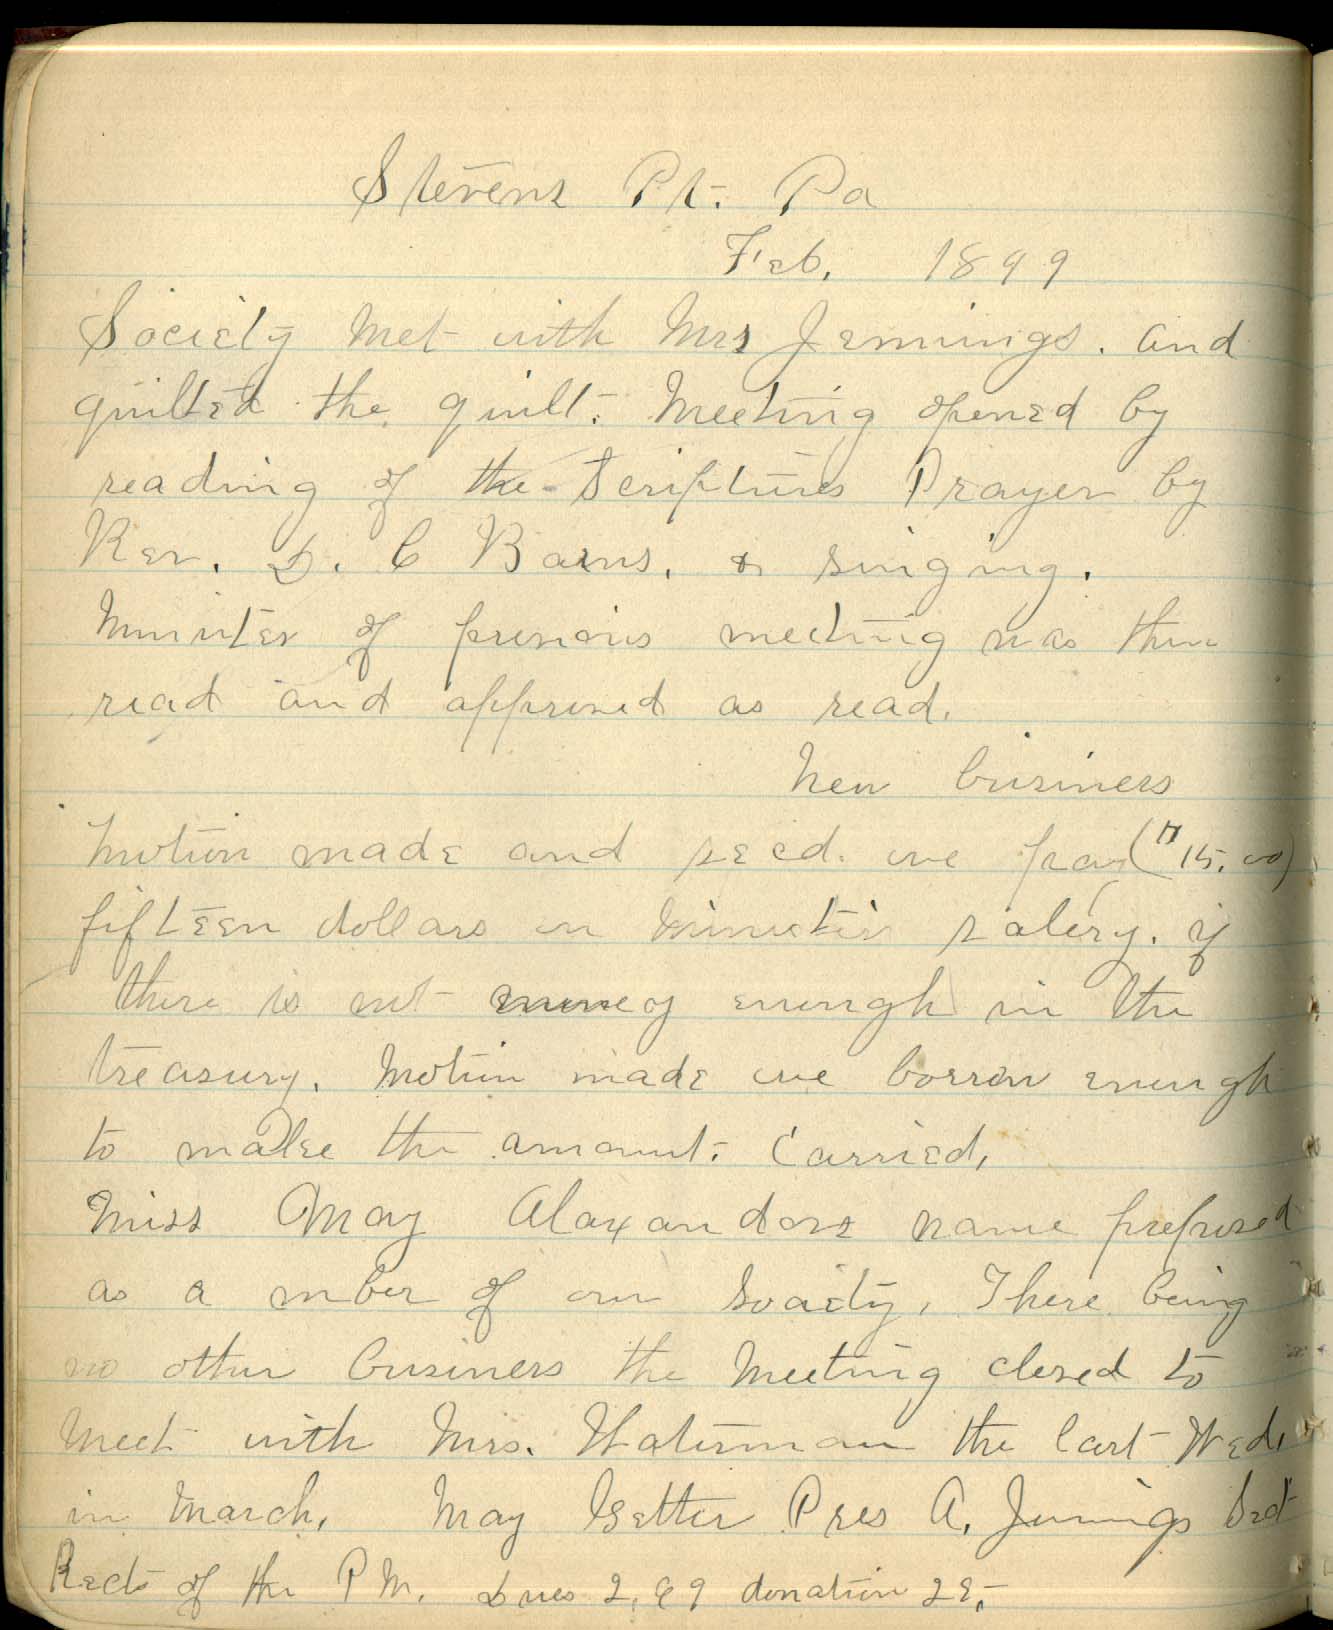 Stevens Pt. Pa
Feb. 1899
Society Met with Mrs Jennings. and
quilted the quilt. Meeting opened by
reading of the Scriptures Prayer by
Rev. D. C Barns. & singing.
Minutes of previous meeting was then
read and approved as read.
New business
Motion made and secd. we pay ($15.00)
fifteen dollars on Ministers salery. if
there is not money enough in the
treasury. Motion made we borrow enough
to make the amount. Carried,
Miss May Alaxanders name preposed
as a mber of our Soaity, There being
no other business the Meeting closed to
Meet with Mrs. Waterman the last Wed,
in March, May Getter Pres A. Jenings Sect
Rects of the P M. Dues 2,89 donation 25,